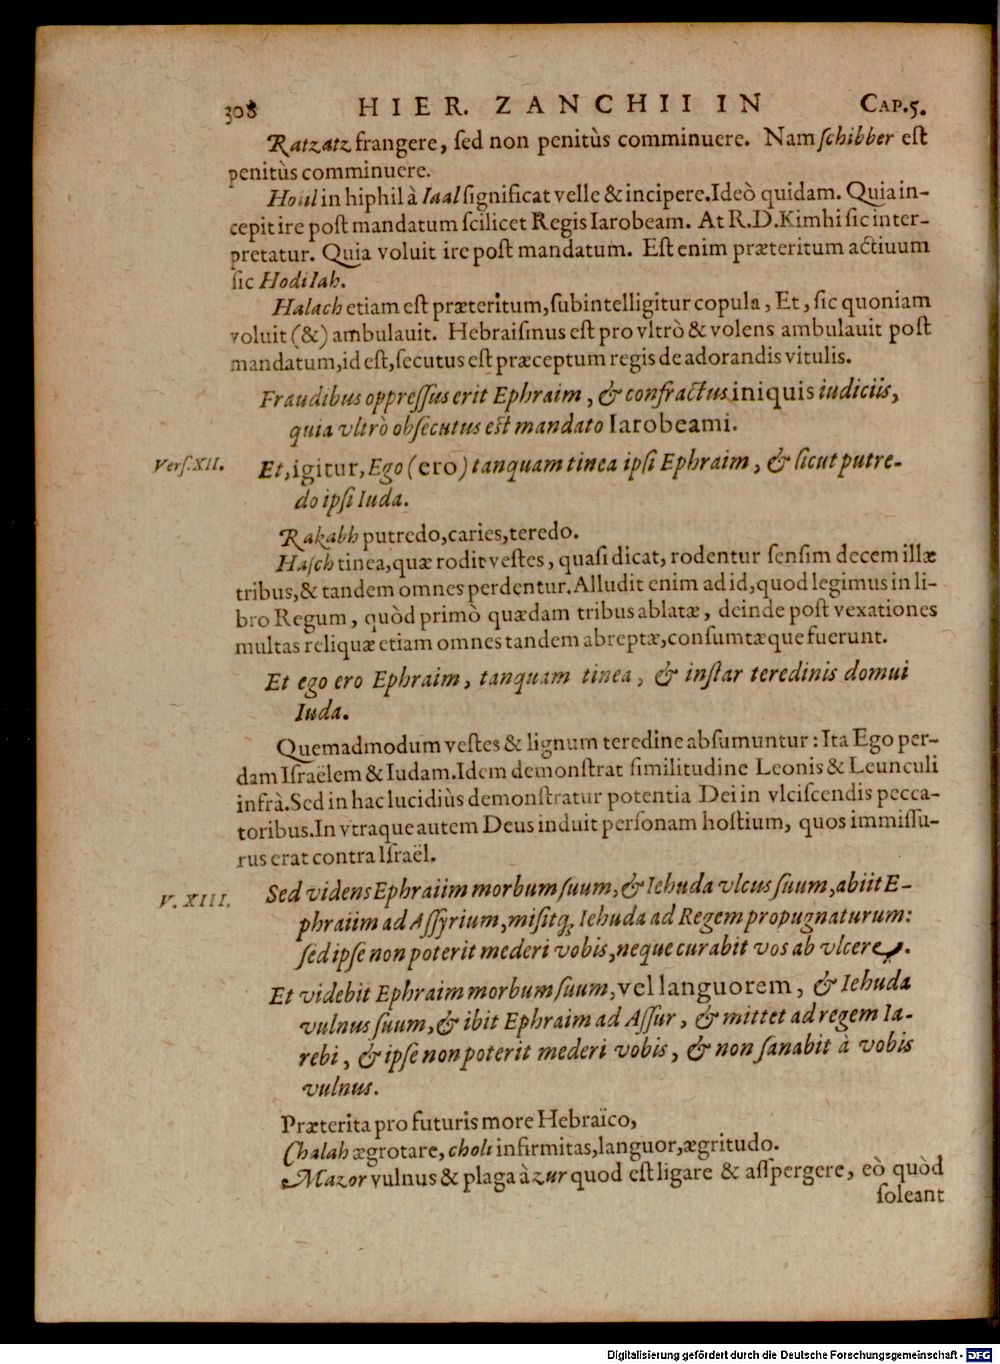 308 HIER. ZANCHII IN CAP.5.
Ratzatz frangere, ſed non penitùs comminuere. Nam ſchibber eſt
penitùs comminuere.
Houl in hiphil à Iaal ſignificat velle & incipere. Ideò quidam. Quia in-
cepit ire poſt mandatum ſcilicet Regis Iarobeam. At R.D.Kimhi ſic inter-
pretatur. Quia voluit ire poſt mandatum. Eſt enim præteritum actiuum
ſic Hodilah.
Halach etiam eſt præteritum, ſubintelligitur copula, Et, ſic quoniam
voluit (&) ambulauit. Hebraiſmus eſt pro vltrò & volens ambulauit poſt
mandatum, id eſt, ſecutus eſt præceptum regis de adorandis vitulis.
Fraudibus oppreſſus erit Ephraim, & confractus iniquis iudiciis,
quia vltrò obſecutus eſt mandato Iarobeami.
Verſ. XII. Et, igitur, Ego (ero) tanquam tinea ipſi Ephraim, & ſicut putre-
do ipſi Iuda.
Rakabh putredo, caries, teredo.
Haſch tinea, quæ rodit veſtes, quaſi dicat, rodentur ſenſim decem illæ
tribus, & tandem omnes perdentur. Alludit enim ad id, quod legimus in li-
bro Regum, quòd primò quædam tribus ablatæ, deinde poſt vexationes
multas reliquæ etiam omnes tandem abreptæ, conſumtæque fuerunt.
Et ego ero Ephraim, tanquam tinea, & inſtar teredinis domui
Iuda.
Quemadmodum veſtes & lignum teredine abſumuntur: Ita Ego per-
dam Iſraëlem & Iudam. Idem demonſtrat ſimilitudine Leonis & Leunculi
infrà. Sed in hac lucidiùs demonſtratur potentia Dei in vlciſcendis pecca-
toribus. In vtraque autem Deus induit perſonam hoſtium, quos immiſſu-
rus erat contra Iſraël.
V. XIII. Sed videns Ephraiim morbum ſuum, & Iehuda vlcus ſuum, abiit E-
phraiim ad Aſſyrium, miſitq; Iehuda ad Regem propugnaturum:
ſed ipſe non poterit mederi vobis, neque curabit vos ab vlcere.
Et videbit Ephraim morbum ſuum, vel languorem, & Iehuda
vulnus ſuum, & ibit Ephraim ad Aſſur, & mittet ad regem Ia-
rebi, & ipſe non poterit mederi vobis, & non ſanabit à vobis
vulnus.
Præterita pro futuris more Hebraïco,
Chalah ægrotare, choli infirmitas, languor, ægritudo.
Mazor vulnus & plaga à zur quod eſt ligare & aſſpergere, eò quòd
ſoleant
Digitalisierung gefördert durch die Deutsche Forschungsgemeinschaft - DFG